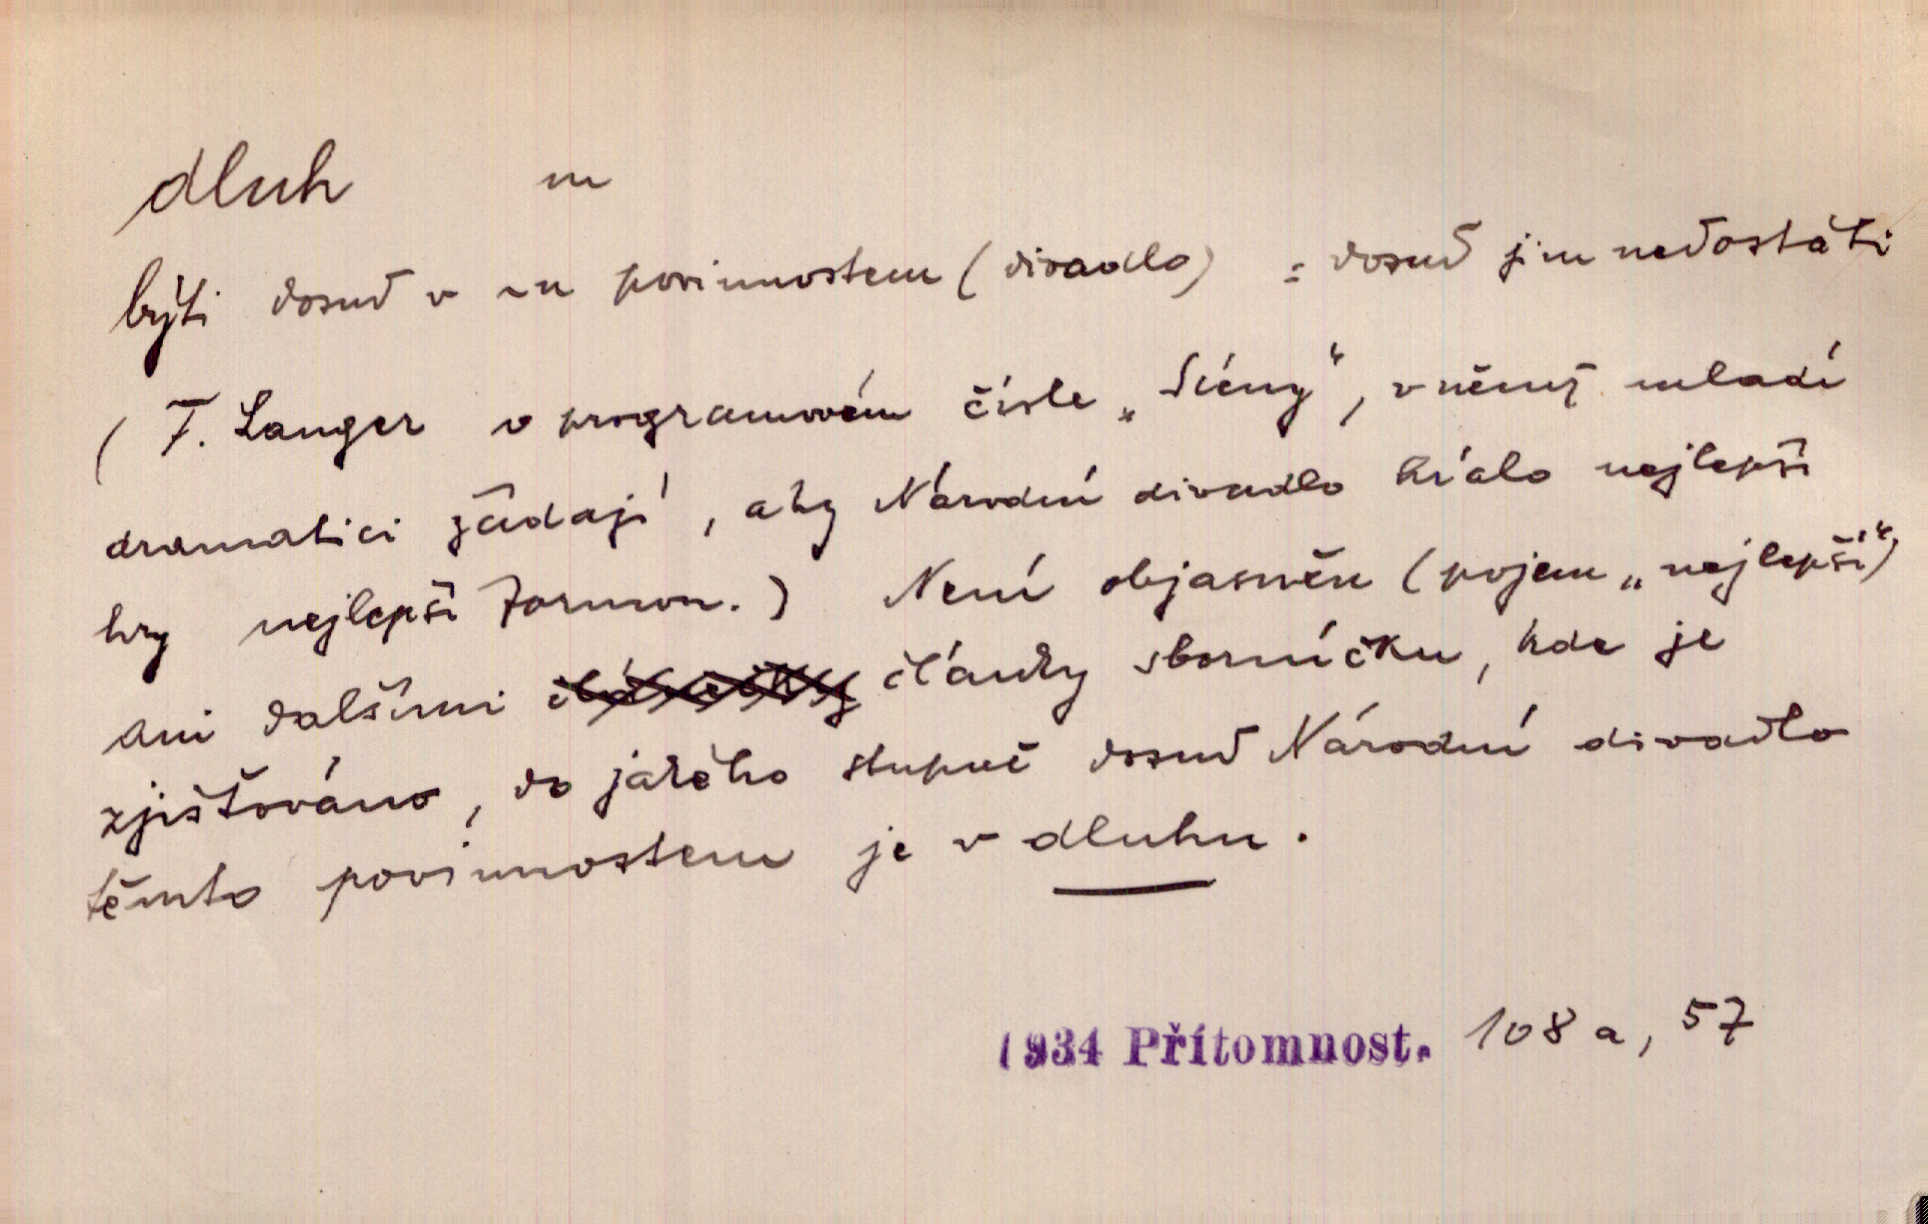 dluh m
býti dosud v ~u povinnostem (divadlo) = dosud jim nedostáti
(F. Langer v programovém čísle „Scény“, v němž mladí
dramatici žádají, aby Národní divadlo hrálo nejlepší
hry nejlepší formou.) Není objasněn (pojem „nejlepší“)
ani dalšími článečky články sborníčku, kde je
zjišťováno, do jakého stupně dosud Národní divadlo
těmto povinnostem je v dluhu.
1934 Přítomnost. 108 a, 57